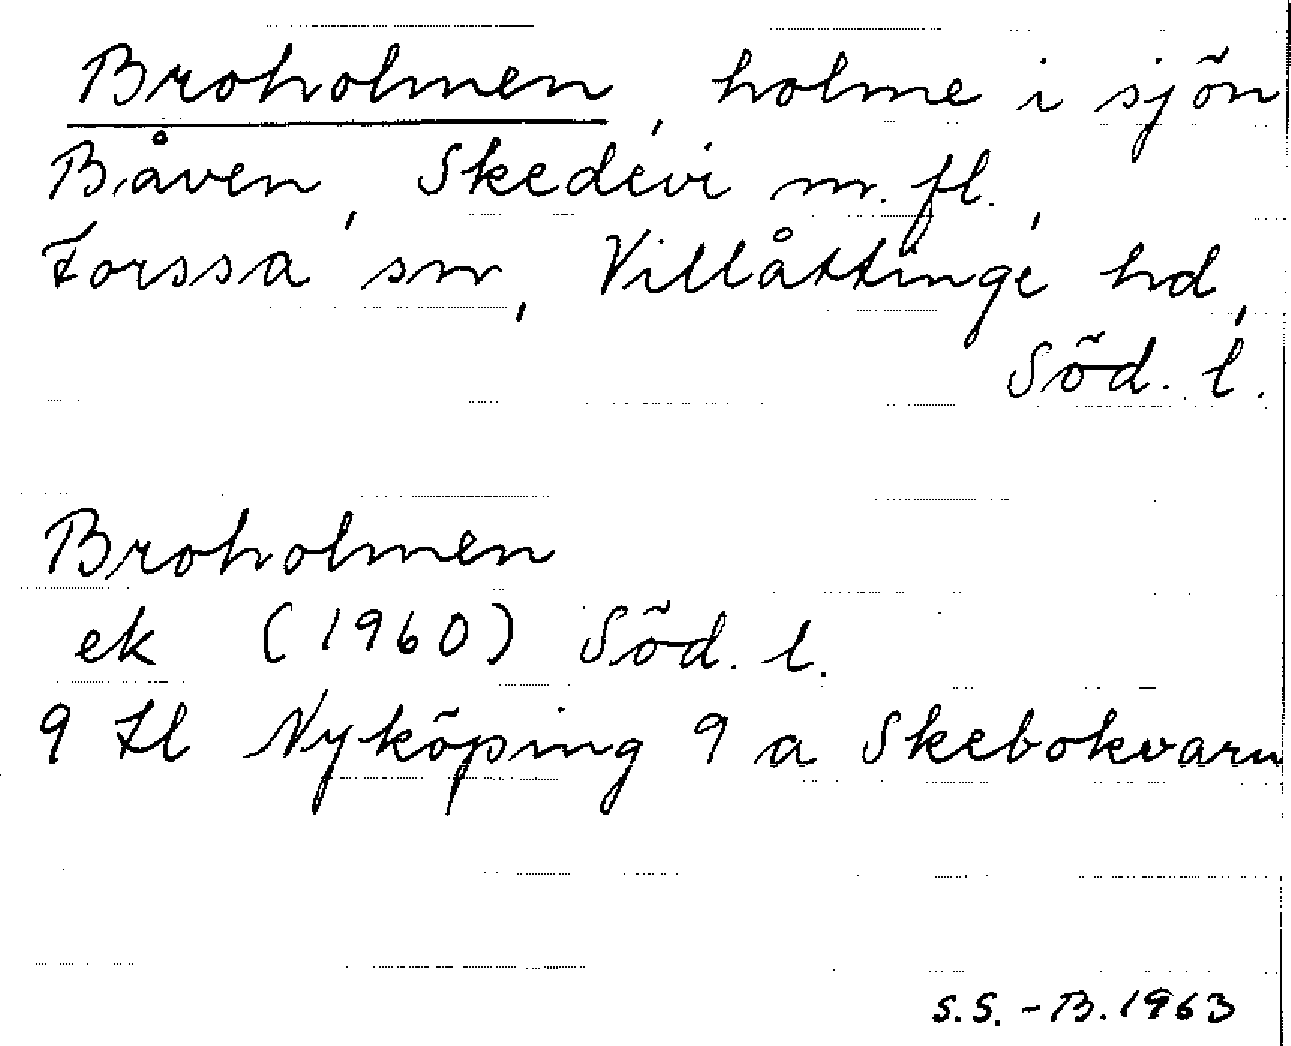 Broholmen, holme i sjön
Båven, Skedevi m. fl.,
Forssa sn, Villåttinge hd,
Söd. l.
Broholmen
ek (1960) Söd. l.
9 H Nyköping 9 a Skebokvarn
S.S.-B. 1963